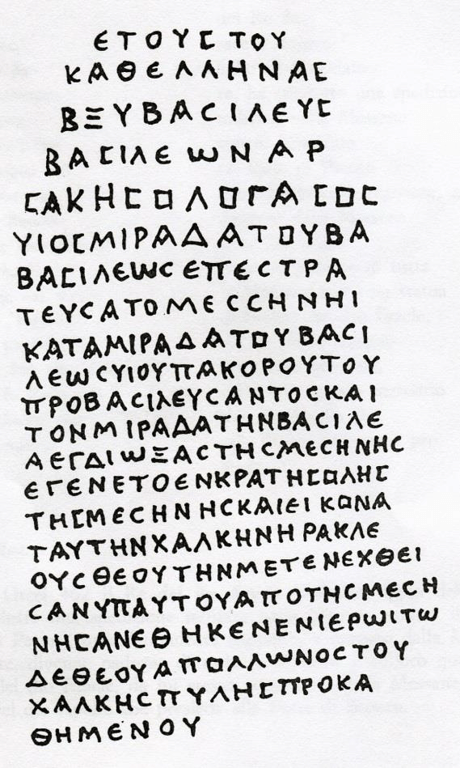 ΕΤΟΥΣ ΤΟΥ
ΚΑΘΕΛΛΗΝΑΣ
ΒΞΥΒΑΣΙΛΕΥΣ
ΒΑΣΙΛΕΩΝ ΑΡ
ΣΑΚΗΣΟΛΟΓΑΣΟΣ
ΥΙΟΣΜΙΡΑΔΑΤΟΥΒΑ
ΒΑΣΙΛΕΩΣΕΠΕΣΤΡΑ
ΤΕΥΣΑΤΟΜΕΣΣΗΝΗΙ
ΚΑΤΑΜΙΡΑΔΑΤΟΥΒΑΣΙ
ΛΕΩΣΥΙΟΥΠΑΚΟΡΟΥΤΟΥ
ΠΡΟΒΑΣΙΛΕΥΣΑΝΤΟΣΚΑΙ
ΤΟΝΜΙΡΑΔΑΤΗΝΒΑΣΙΛΕ
ΑΕΓΔΙΩΞΑΣΤΗΣΜΕΣΗΝΗΣ
ΕΓΕΝΕΤΟΕΝΚΡΑΤΗΣΟΛΗΣ
ΤΗΣΜΕΣΗΝΗΣΚΑΙΕΙΚΟΝΑ
ΤΑΥΤΗΝΧΑΛΚΗΝΗΡΑΚΛΕ
ΟΥΣΘΕΟΥΤΗΝΜΕΤΕΝΕΧΘΕΙ
ΣΑΝΥΠΑΥΤΟΥΑΠΟΤΗΣΜΕΣΗ
ΝΗΣΑΝΕΘΗΚΕΝΕΝΙΕΡΩΙΤΩ
ΔΕΘΕΟΥΑΠΟΛΛΩΝΟΣΤΟΥ
ΧΑΛΚΗΣΠΥΛΗΣΠΡΟΚΑ
ΘΗΜΕΝΟΥ